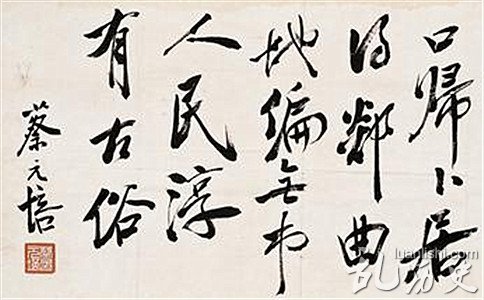 口歸卜居
得鄰曲
地偏無市
人民淳
有古俗
蔡元培
luanlishi.com
乱历史